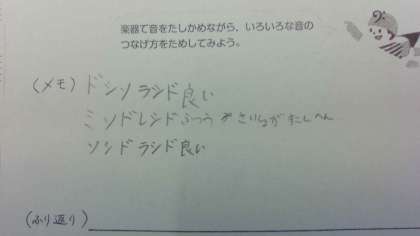 楽器で音をたしかめながら、いろいろな音の
つなげ方をためしてみよう。
(メモ) ドシソラシド良い
ミソドレシドふつう
ソシドラシド良い
(ふり返り)